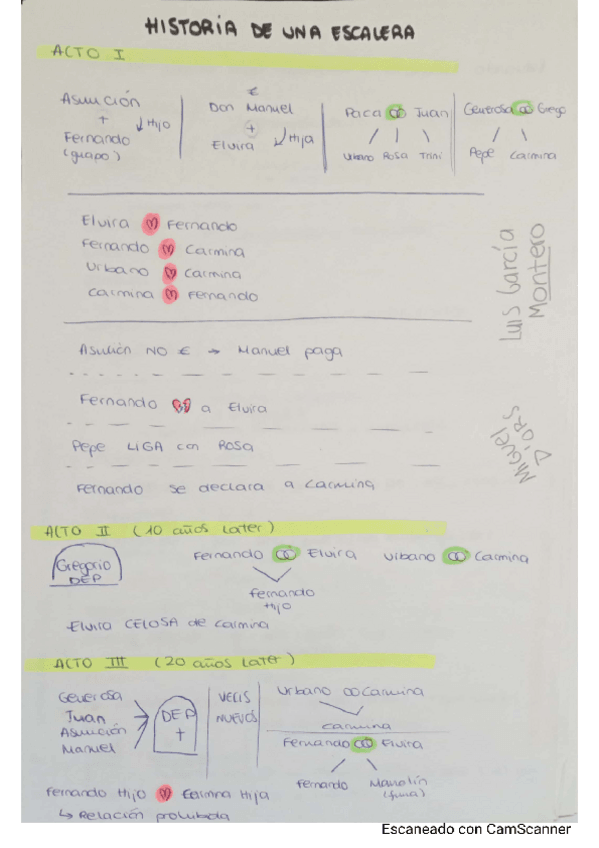 HISTORIA DE UNA ESCALERA
ACTO I
Asunción
+
Fernando
(guapo)
↳ Hijo
€
Don Manuel
+
Elvira
↳ Hija
Paca ꝏ Juan
Urbano Rosa Trini
Generosa ꝏ Grego
Pepe Carmina
Elvira ♡ Fernando
Fernando ♡ Carmina
Urbano ♡ Carmina
Carmina ♡ Fernando
Luis García
Montero
Asunción NO € → Manuel paga
Fernando 💔 a Elvira
Pepe LIGA con ROSA
Fernando se declara a Carmina
Miguel
D'ORS
ACTO II (10 años later)
Gregorio
DEP
Fernando ꝏ Elvira
Urbano ꝏ Carmina
Fernando
Hijo
Elvira CELOSA de Carmina
ACTO III (20 años later)
Generosa
Juan
Asunción
Manuel
DEP
+
VECIS
NUEVOS
Urbano ꝏ Carmina
Carmina
Fernando ꝏ Elvira
Fernando
Manolín
Fernando Hijo ♡ Carmina Hija
↳ Relación prohibida
Escaneado con CamScanner